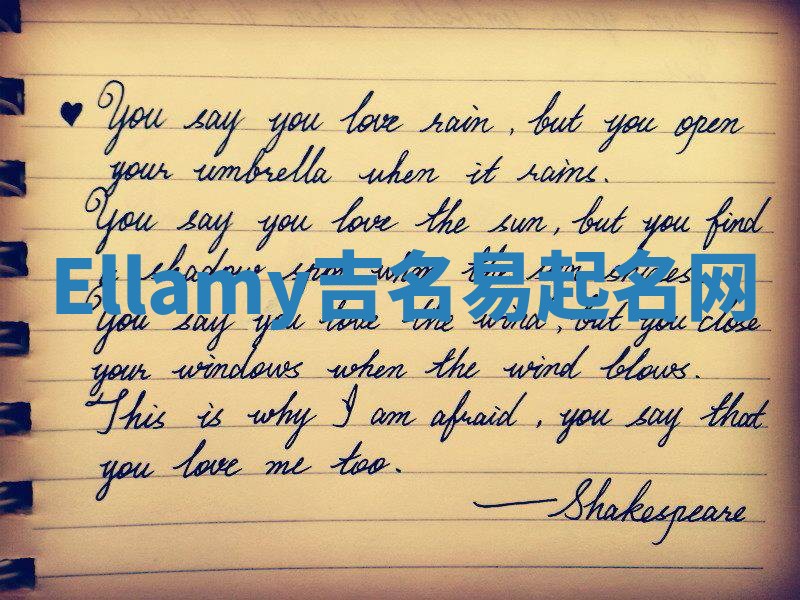 ♥ You say you love rain, but you open
your umbrella when it rains.
You say you love the sun, but you find
a shadow spot when the sun shines.
Ellamy吉名易起名网
You say you love the wind, but you close
your windows when the wind blows.
This is why I am afraid, you say that
you love me too.
—Shakespeare